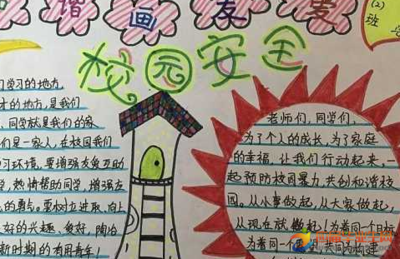 谐画友爱
(2)
班
校园安全
门学习的地方
才的地方,是我们
,同学就是我们的家
们是一家人,在校园我们
习环境,要增强友爱互助
热情帮助同学,增强友
的美点,要树立进取、向上
好的兴趣、食好,陶冶
新时期的有用青年!
老师们,同学们,
为了个人的成长,为了家庭
的幸福,让我们行动起来,一
起预防校园暴力,共创和谐校
园。从小事做起,从大家做起,
从现在就做起!为着同一个目标
为着同一个